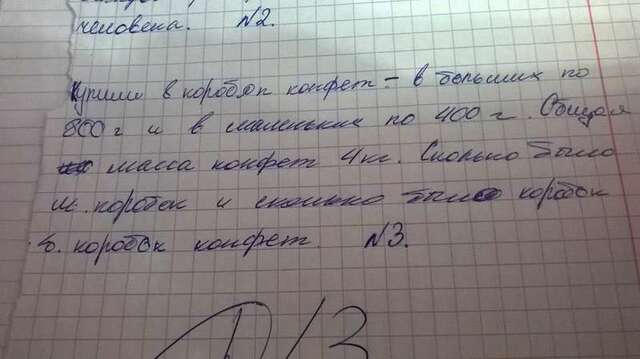 человека. №2.
Купили 8 коробок конфет - в больших по
800 г и в маленьких по 400 г. Общая
масса конфет 4 кг. Сколько было
м. коробок и сколько было коробок
б. коробок конфет. №3.
Д/З